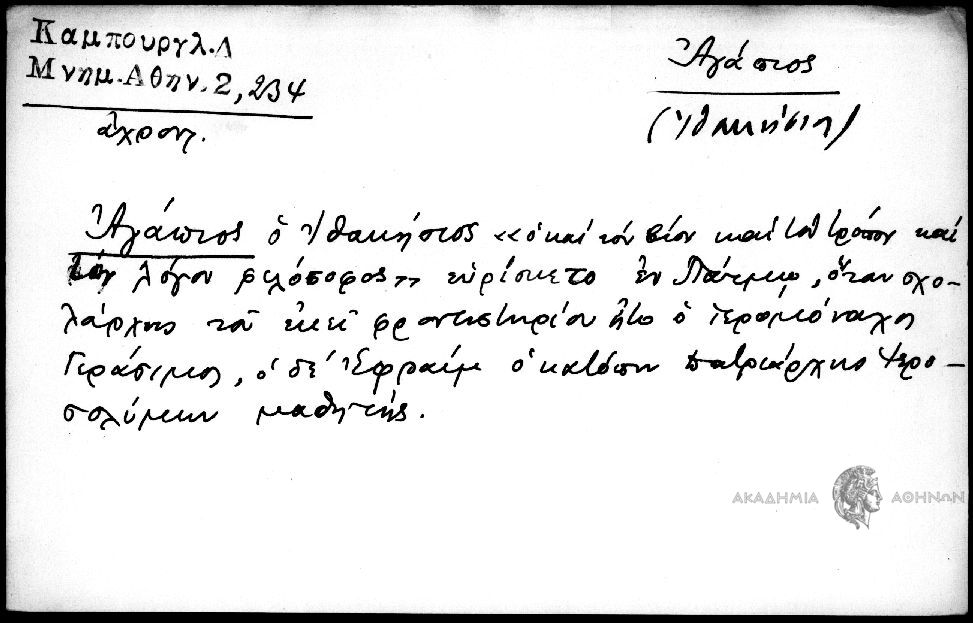 Καμπουργλ.Δ
Μνημ.Αθην.2,234
ἄχρον.
Ἀγάπιος
(Ἰθακήσιος)
Ἀγάπιος ὁ Ἰθακήσιος «ὁ καί τόν βίον καί τόν τρόπον καί
τόν λόγον φιλόσοφος» εὑρίσκετο ἐν Πάτμῳ, ὅταν σχο-
λάρχης τοῦ ἐκεῖ φροντιστηρίου ἦτο ὁ ἱερομόναχος
Γεράσιμος, ὁ δέ Ἐφραίμ ὁ κατόπιν πατριάρχης Ἱερο-
σολύμων μαθητής.
ΑΚΑΔΗΜΙΑ ΑΘΗΝΩΝ